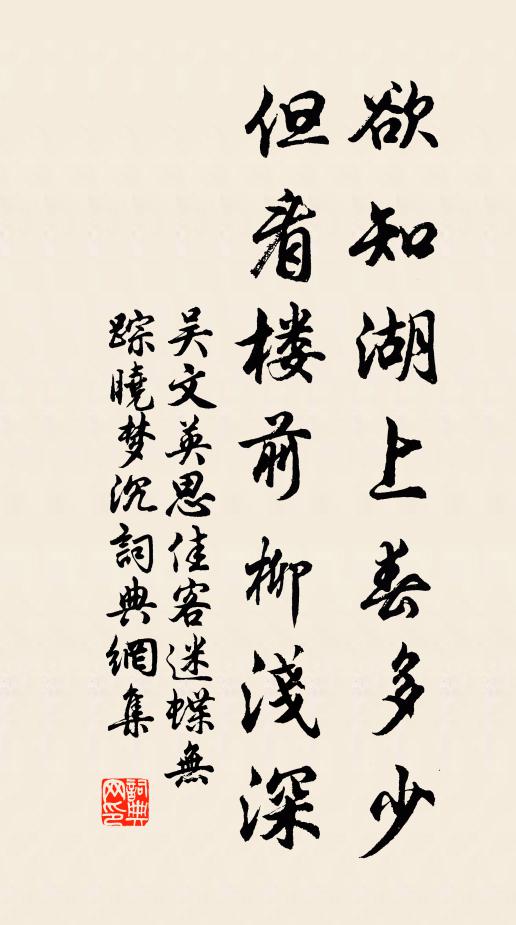 欲知湖上春多少
但看楼前柳淺深
吴文英思佳客迷蝶無
踪曉梦沉詞典網集
詞典网印